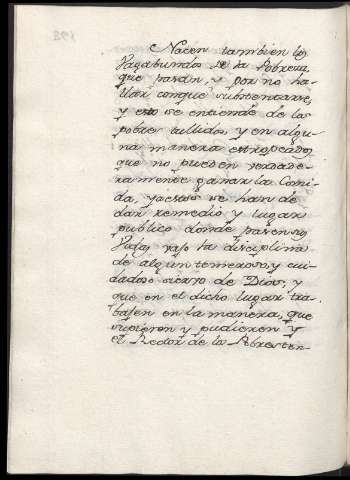 Nacen tambien los
Vagabundos de la Pobreza,
que pasan, y por no ha-
llar conque substentarse,
y esto se entiende de los
pobres tullidos, y en algu-
na manera estropeados
que no pueden verdade-
ramente ganar la Comi-
da, y a estos se han de
dar remedio y lugar
publico donde pasen sus
Vidas vajo la disciplina
de algun temeroso, y cui-
dadoso siervo de Dios, y
que en el dicho lugar tra-
bajen en la manera, que
supieren y pudieren y
el Rector de los Pobres ten-